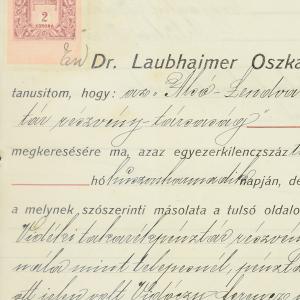 2
KORONA
Én Dr. Laubhaimer Oszka
tanusítom, hogy: az "Alsó-Lendva
tár részvény-társaság"
megkeresésére ma, azaz egyezerkilenczszáz
hó huszonharmadik napján, de
a melynek szószerinti másolata a tulsó oldalo
Vidéki takarékpénztár részvén
nála mint telepesnél, pénzt
ott jelen volt